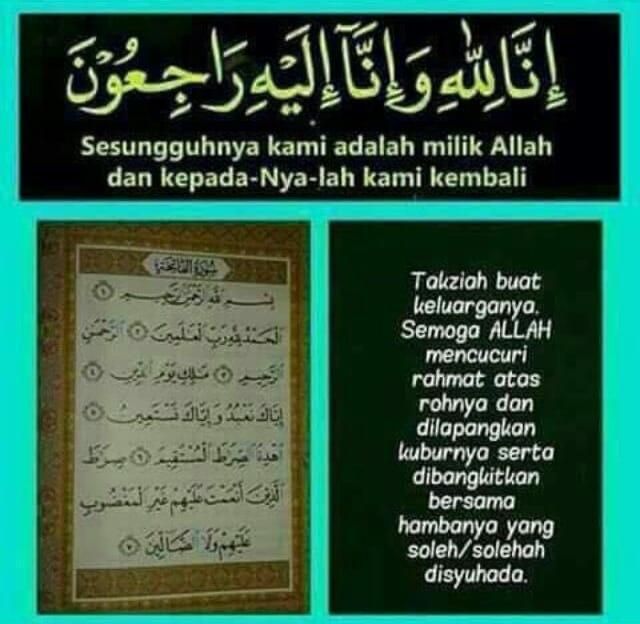 إِنَّا لِلّٰهِ وَإِنَّآ إِلَيْهِ رَاجِعُوْنَ
Sesungguhnya kami adalah milik Allah
dan kepada-Nya-lah kami kembali
سُورَةُ الفَاتِحَةِ
بِسْمِ اللَّهِ الرَّحْمَٰنِ الرَّحِيمِ ١
الْحَمْدُ لِلَّهِ رَبِّ الْعَالَمِينَ ٢ الرَّحْمَٰنِ
الرَّحِيمِ ٣ مَالِكِ يَوْمِ الدِّينِ ٤
إِيَّاكَ نَعْبُدُ وَإِيَّاكَ نَسْتَعِينُ ٥
اهْدِنَا الصِّرَاطَ الْمُسْتَقِيمَ ٦ صِرَاطَ
الَّذِينَ أَنْعَمْتَ عَلَيْهِمْ غَيْرِ الْمَغْضُوبِ
عَلَيْهِمْ وَلَا الضَّالِّينَ ٧
Takziah buat
keluarganya.
Semoga ALLAH
mencucuri
rahmat atas
rohnya dan
dilapangkan
kuburnya serta
dibangkitkan
bersama
hambanya yang
soleh/solehah
disyuhada.